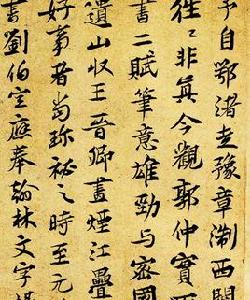 予自鄂渚至豫章淛西
徃々非真今觀郭仲實
書二賦筆意雄勁与密國
遺山收王晉卿畫煙江疊
好事者尚珎祕之時至元
書劉伯宣應奉翰林文字